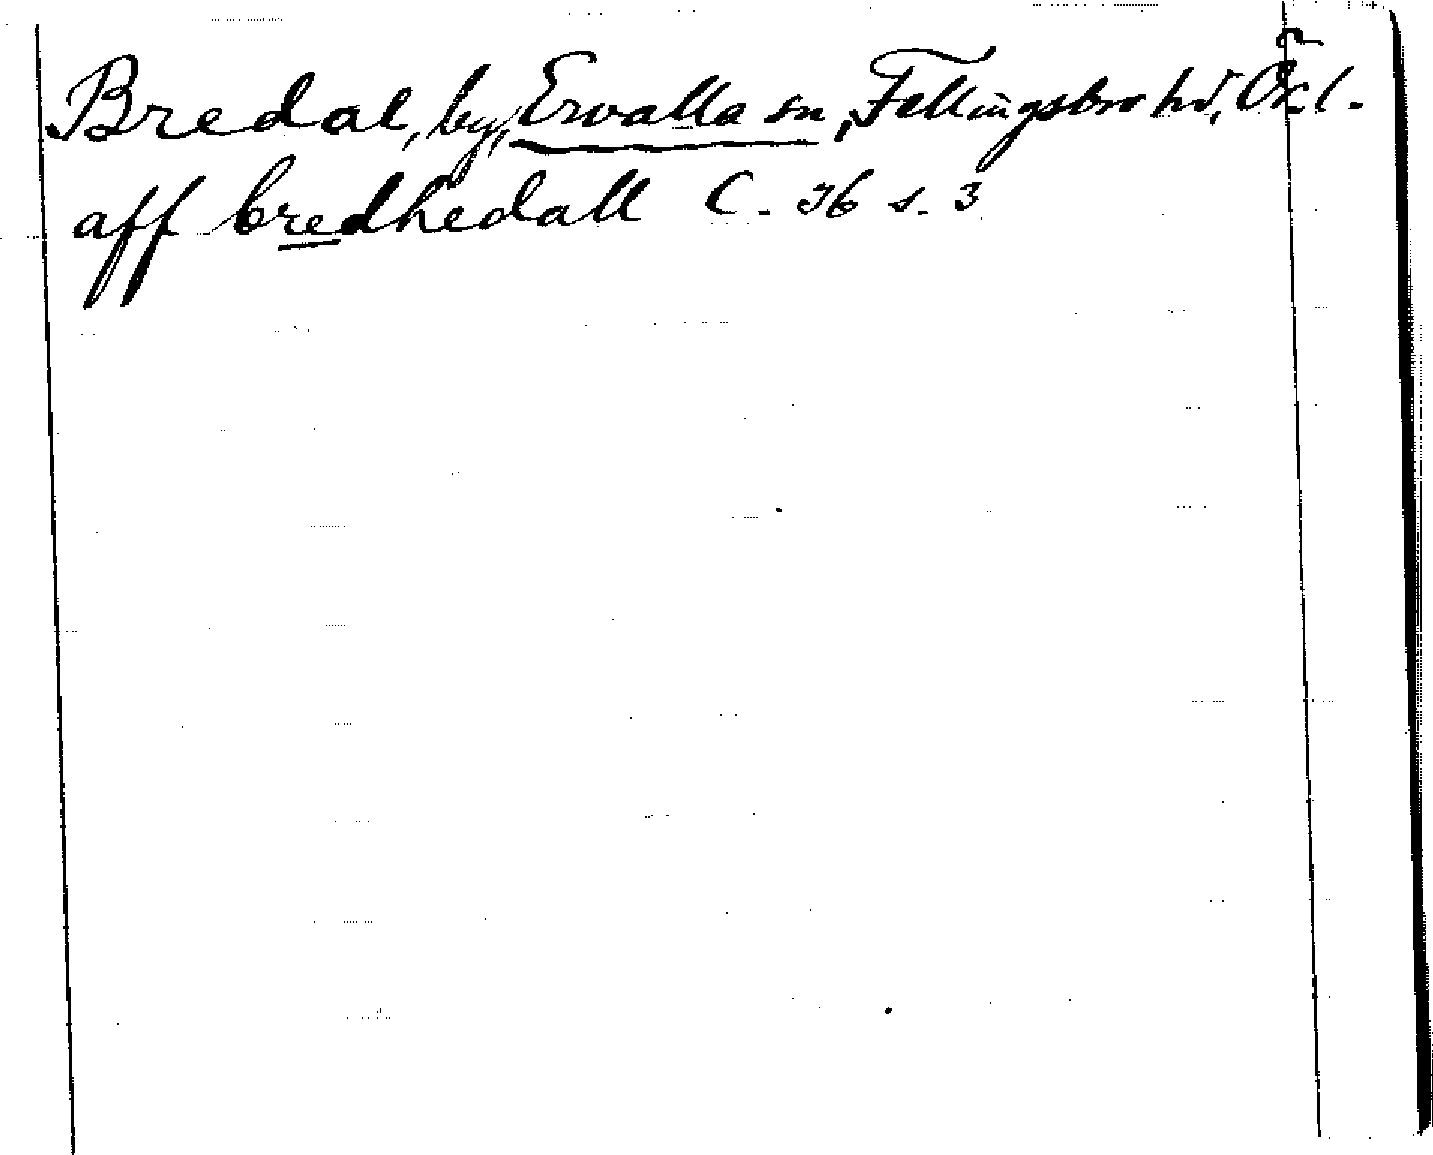 Bredal, by, Ervalla sn, Fellingsbro hd, Ör l.
aff bredhedall C. 36 s. 3